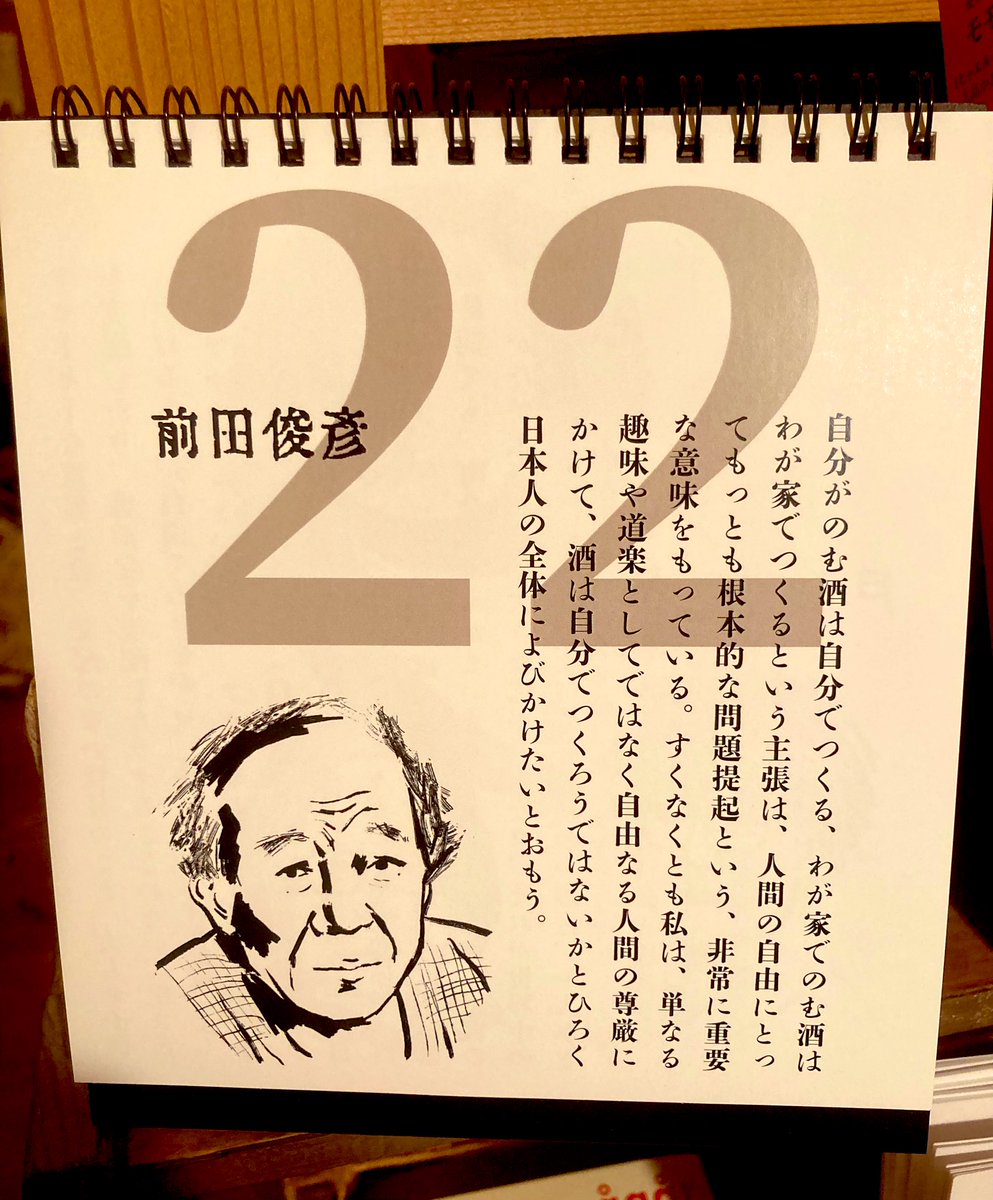 22
自分がのむ酒は自分でつくる、わが家でのむ酒は
わが家でつくるという主張は、人間の自由にとっ
てもっとも根本的な問題提起という、非常に重要
な意味をもっている。すくなくとも私は、単なる
趣味や道楽としてではなく自由なる人間の尊厳に
かけて、酒は自分でつくろうではないかとひろく
日本人の全体によびかけたいとおもう。
前田俊彦